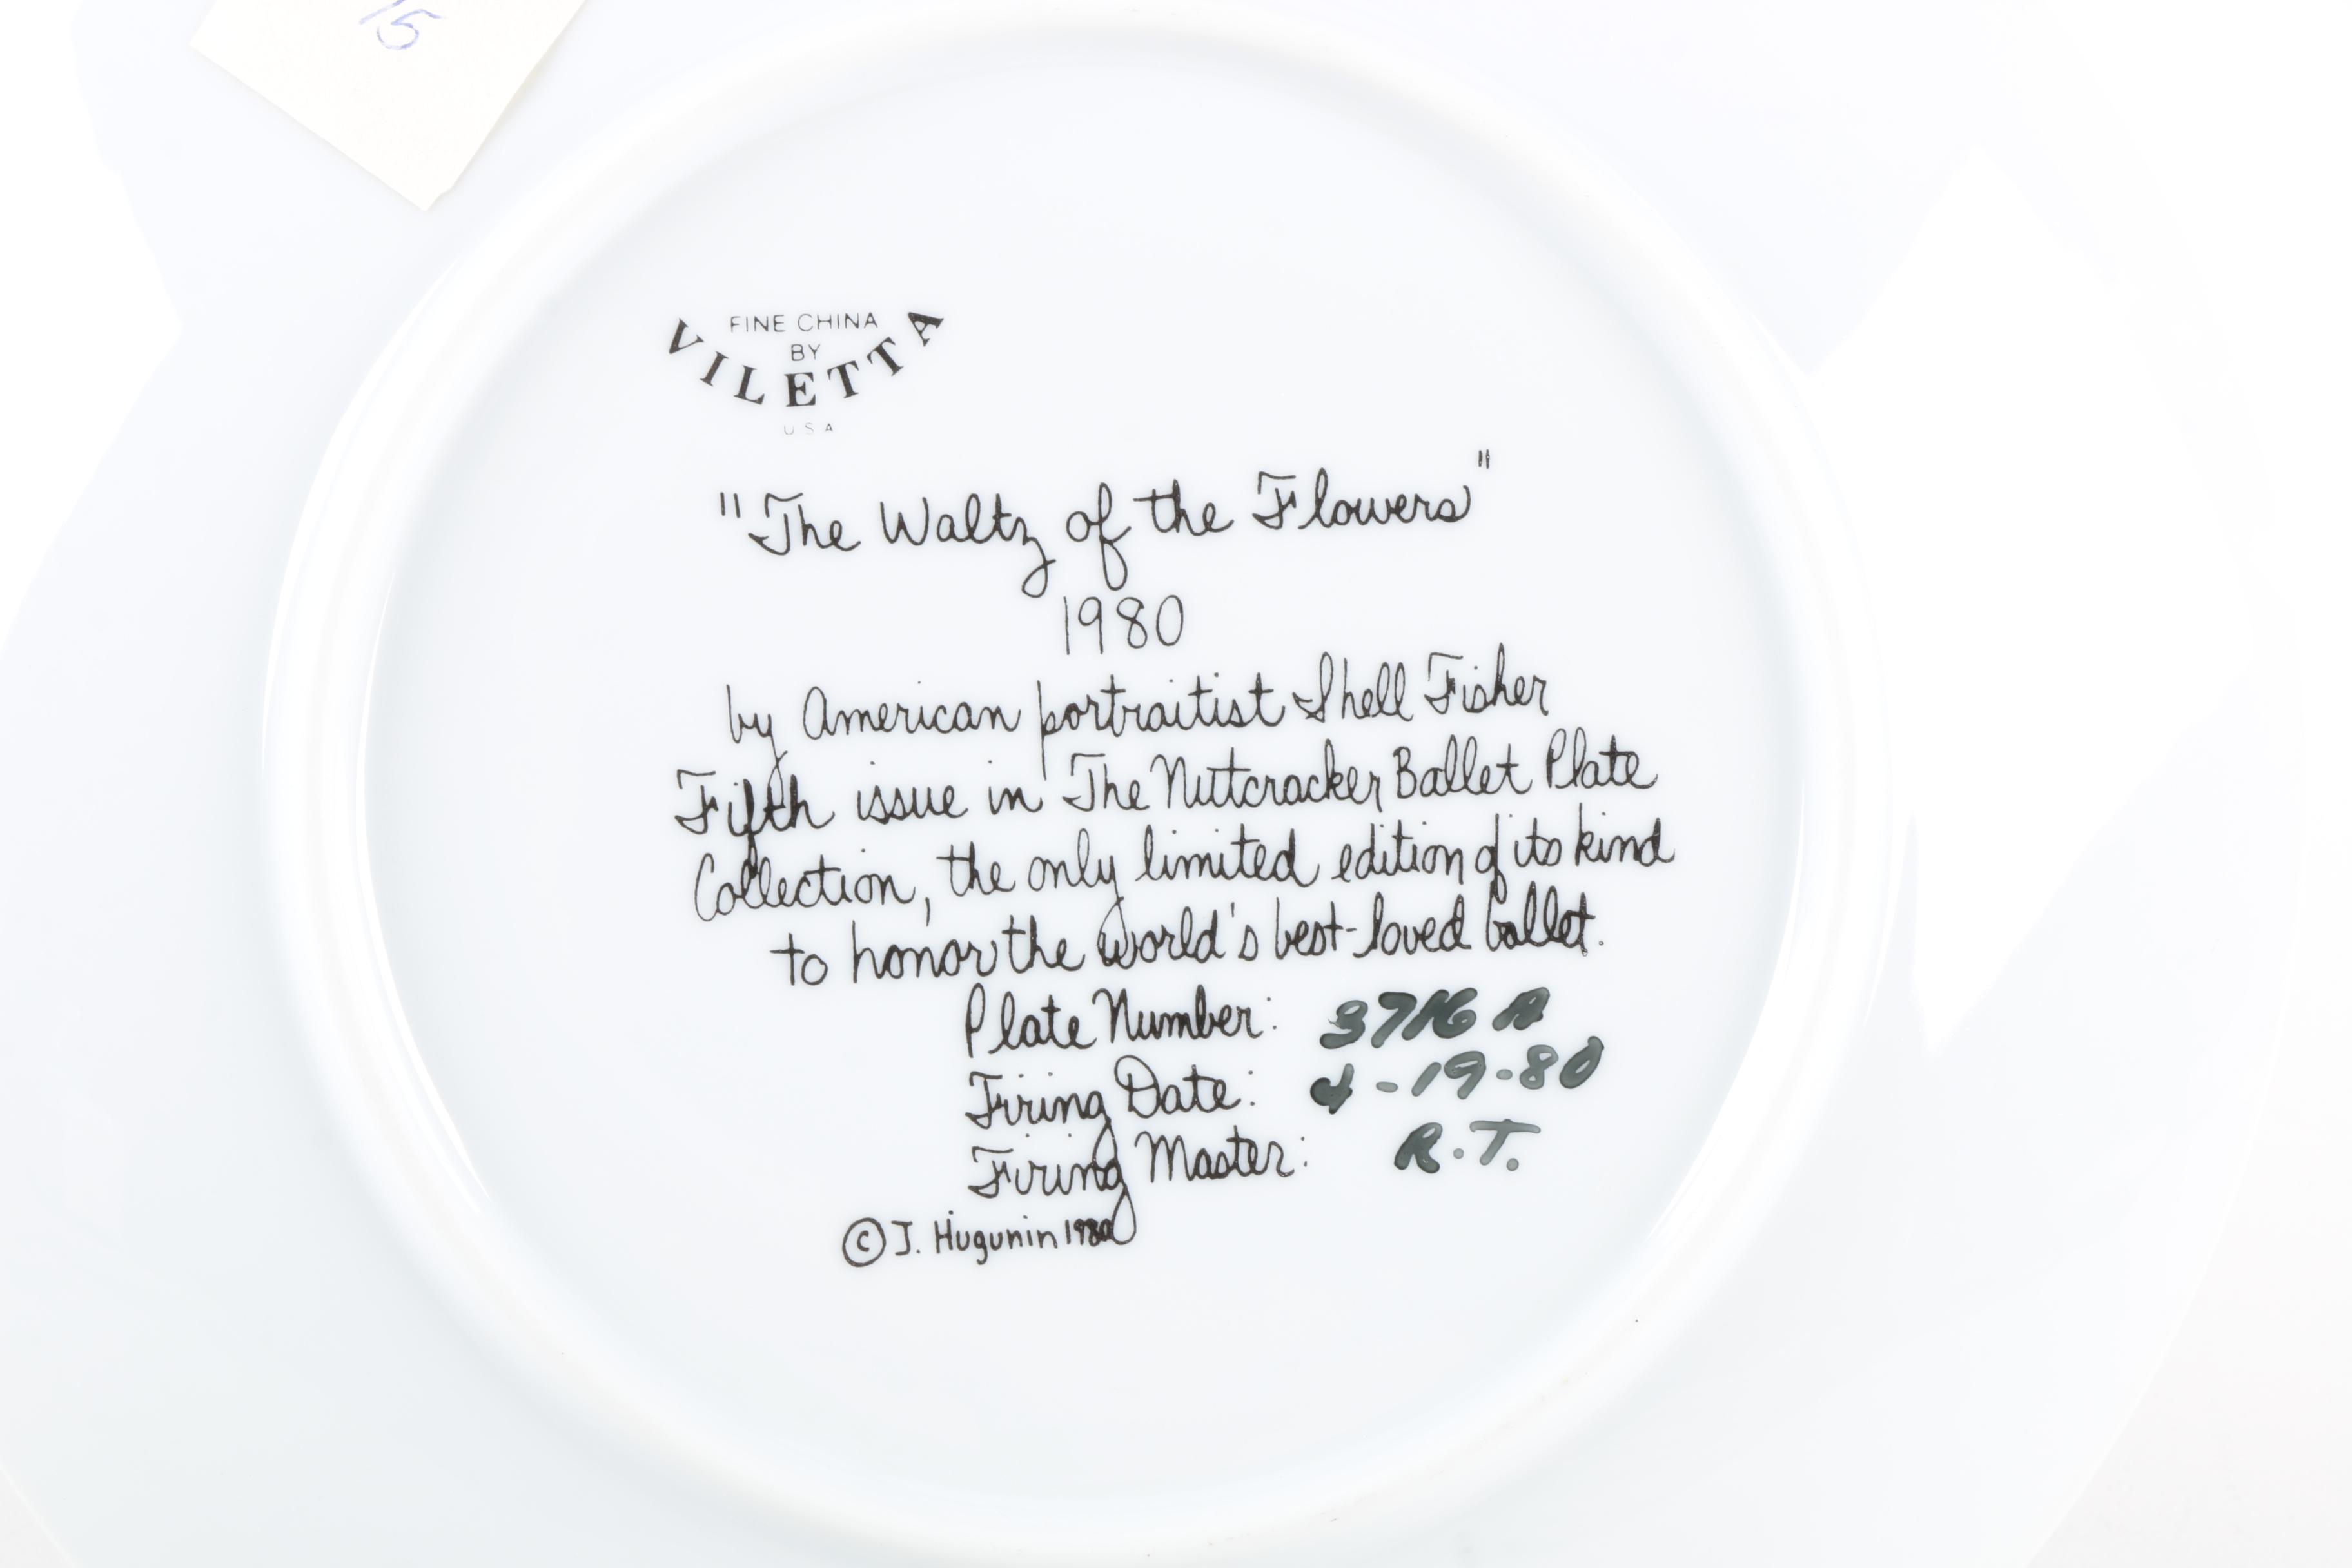 15
FINE CHINA
BY
VILETTA
USA
"The Waltz of the Flowers"
1980
by American portraitist Shell Fisher
Fifth issue in The Nutcracker Ballet Plate
Collection, the only limited edition of its kind
to honor the world's best-loved ballet.
Plate Number: 3716 A
Firing Date: 4-19-80
Firing Master: R.T.
© J. Hugunin 1980